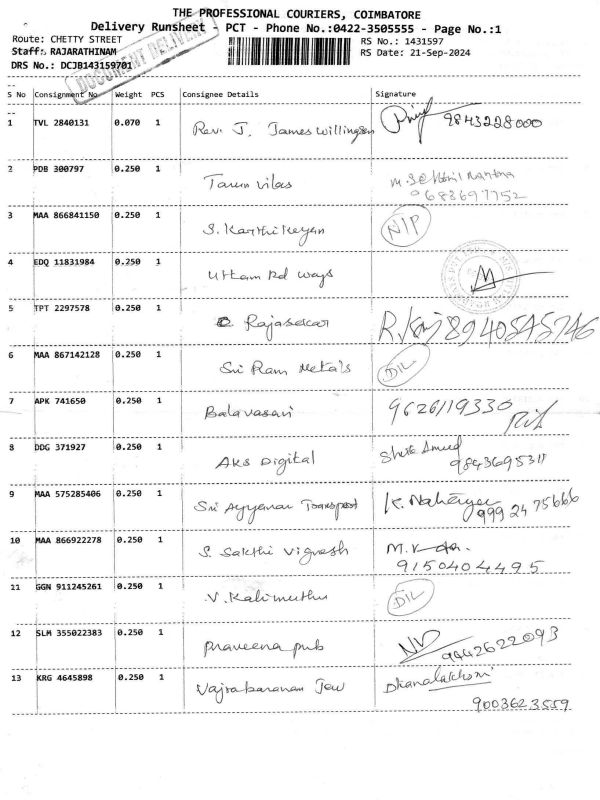 THE PROFESSIONAL COURIERS, COIMBATORE
Delivery Runsheet - PCT - Phone No.:0422-3505555 - Page No.:1
Route: CHETTY STREET RS No.: 1431597
Staff: RAJARATHINAM RS Date: 21-Sep-2024
DRS No.: DCJB143159701
S No Consignment No Weight PCS Consignee Details Signature
1 TVL 2840131 0.070 1 Rev. J. James Willingson 9843228000
2 PDB 300797 0.250 1 Tarun Vilas
9683697752
3 MAA 866841150 0.250 1 S. Karthikeyan N/P
4 EDQ 11831984 0.250 1 Uttam Rd Ways
5 TPT 2297578 0.250 1 Rajasekar 8940545746
6 MAA 867142128 0.250 1 Sri Ram Metals D/L
7 APK 741650 0.250 1 Balavasavi 9626119330
8 DDG 371927 0.250 1 AKS Digital
9843695311
9 MAA 575285406 0.250 1 Sri Ayyanar Transport K.
999 24 75666
10 MAA 866922278 0.250 1 S. Sakthi Vignesh M.
9150404495
11 GGN 911245261 0.250 1 V. Kalimuthu D/L
12 SLM 355022383 0.250 1 Praveena pub 9442622093
13 KRG 4645898 0.250 1 Vajrabaranam Jew Dhanalakshmi
9003623559